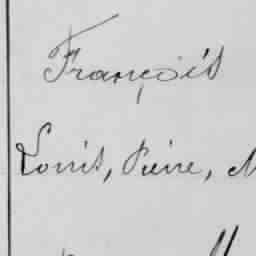 François
Louis, Pierre,